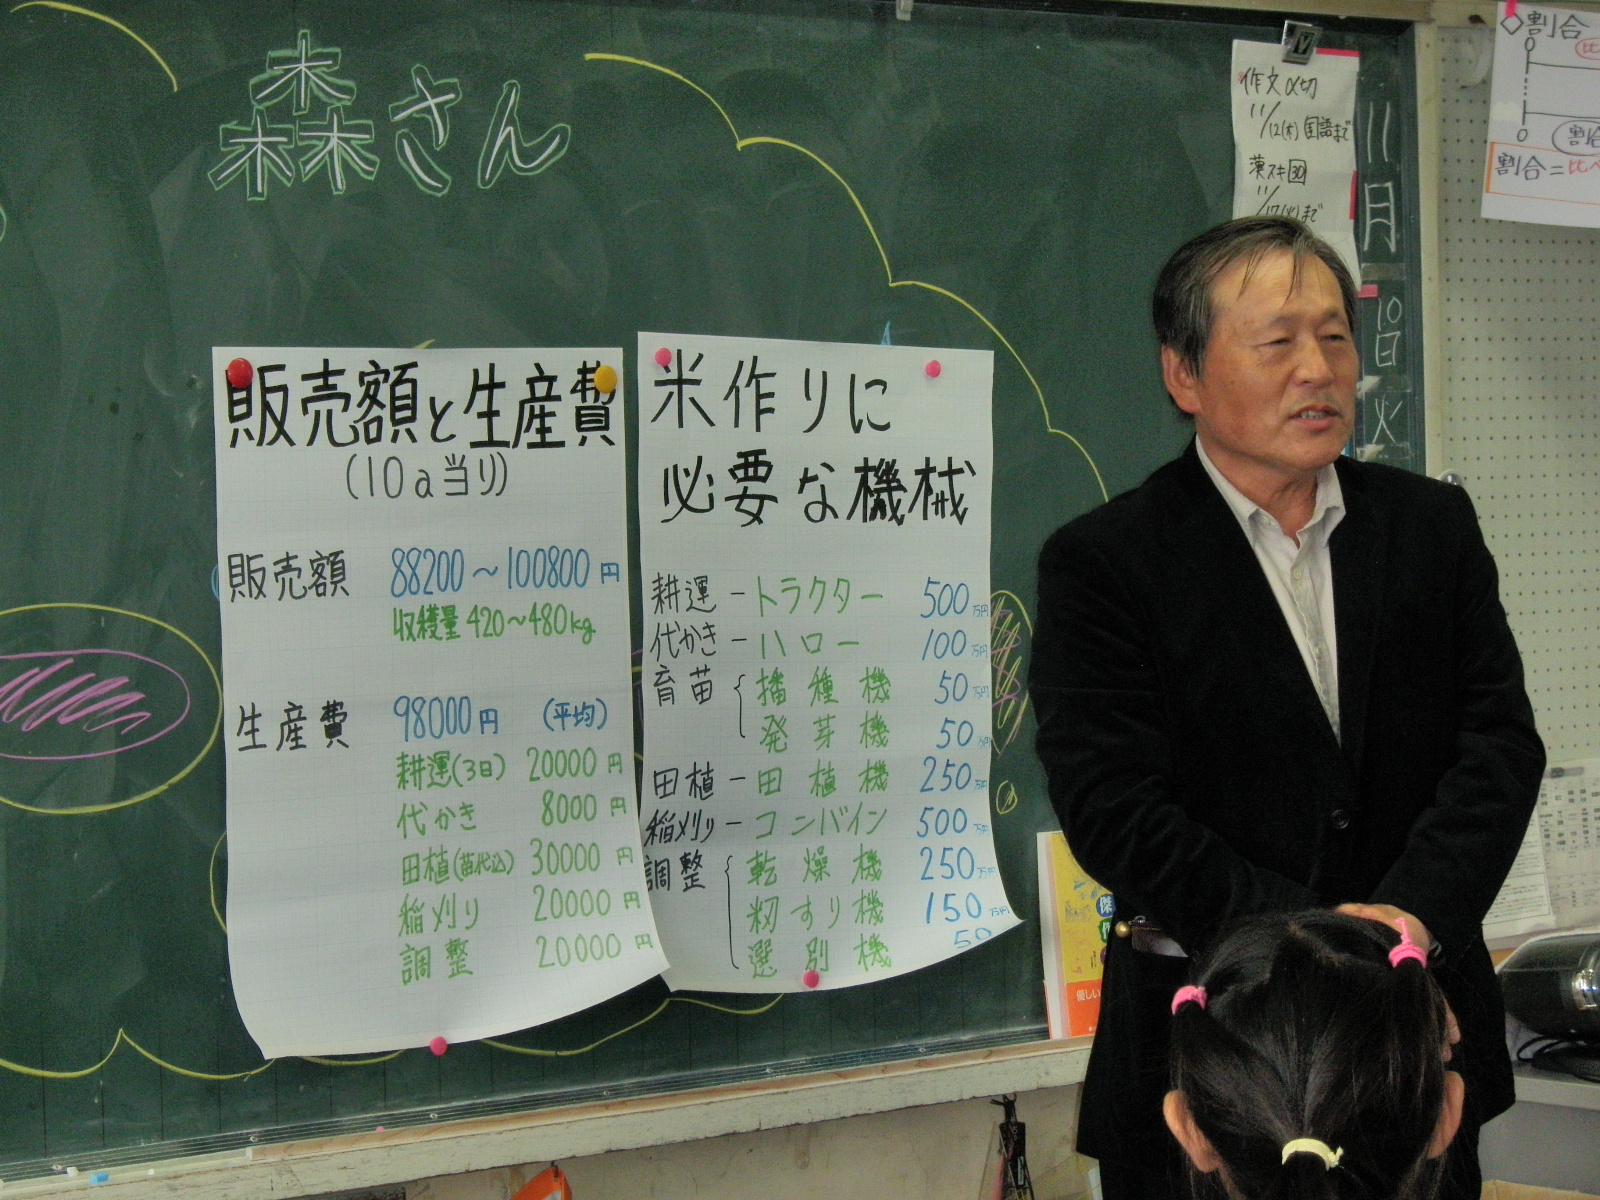 森さん
販売額と生産費
(10a当り)
販売額 88200～100800円
収穫量 420～480kg
生産費 98000円 (平均)
耕運(3日) 20000円
代かき 8000円
田植(苗代込) 30000円
稲刈り 20000円
調整 20000円
米作りに
必要な機械
耕運－トラクター 500万円
代かき－ハロー 100万円
育苗 播種機 50万円
発芽機 50万円
田植－田植機 250万円
稲刈り－コンバイン 500万円
調整 乾燥機 250万円
籾すり機 150万円
選別機 50
作文〆切
11/12(木)国語まで
漢スキ㉚
11/17(火)まで
11月
10日
火
◇割合
割合
割合=比べ
優しい